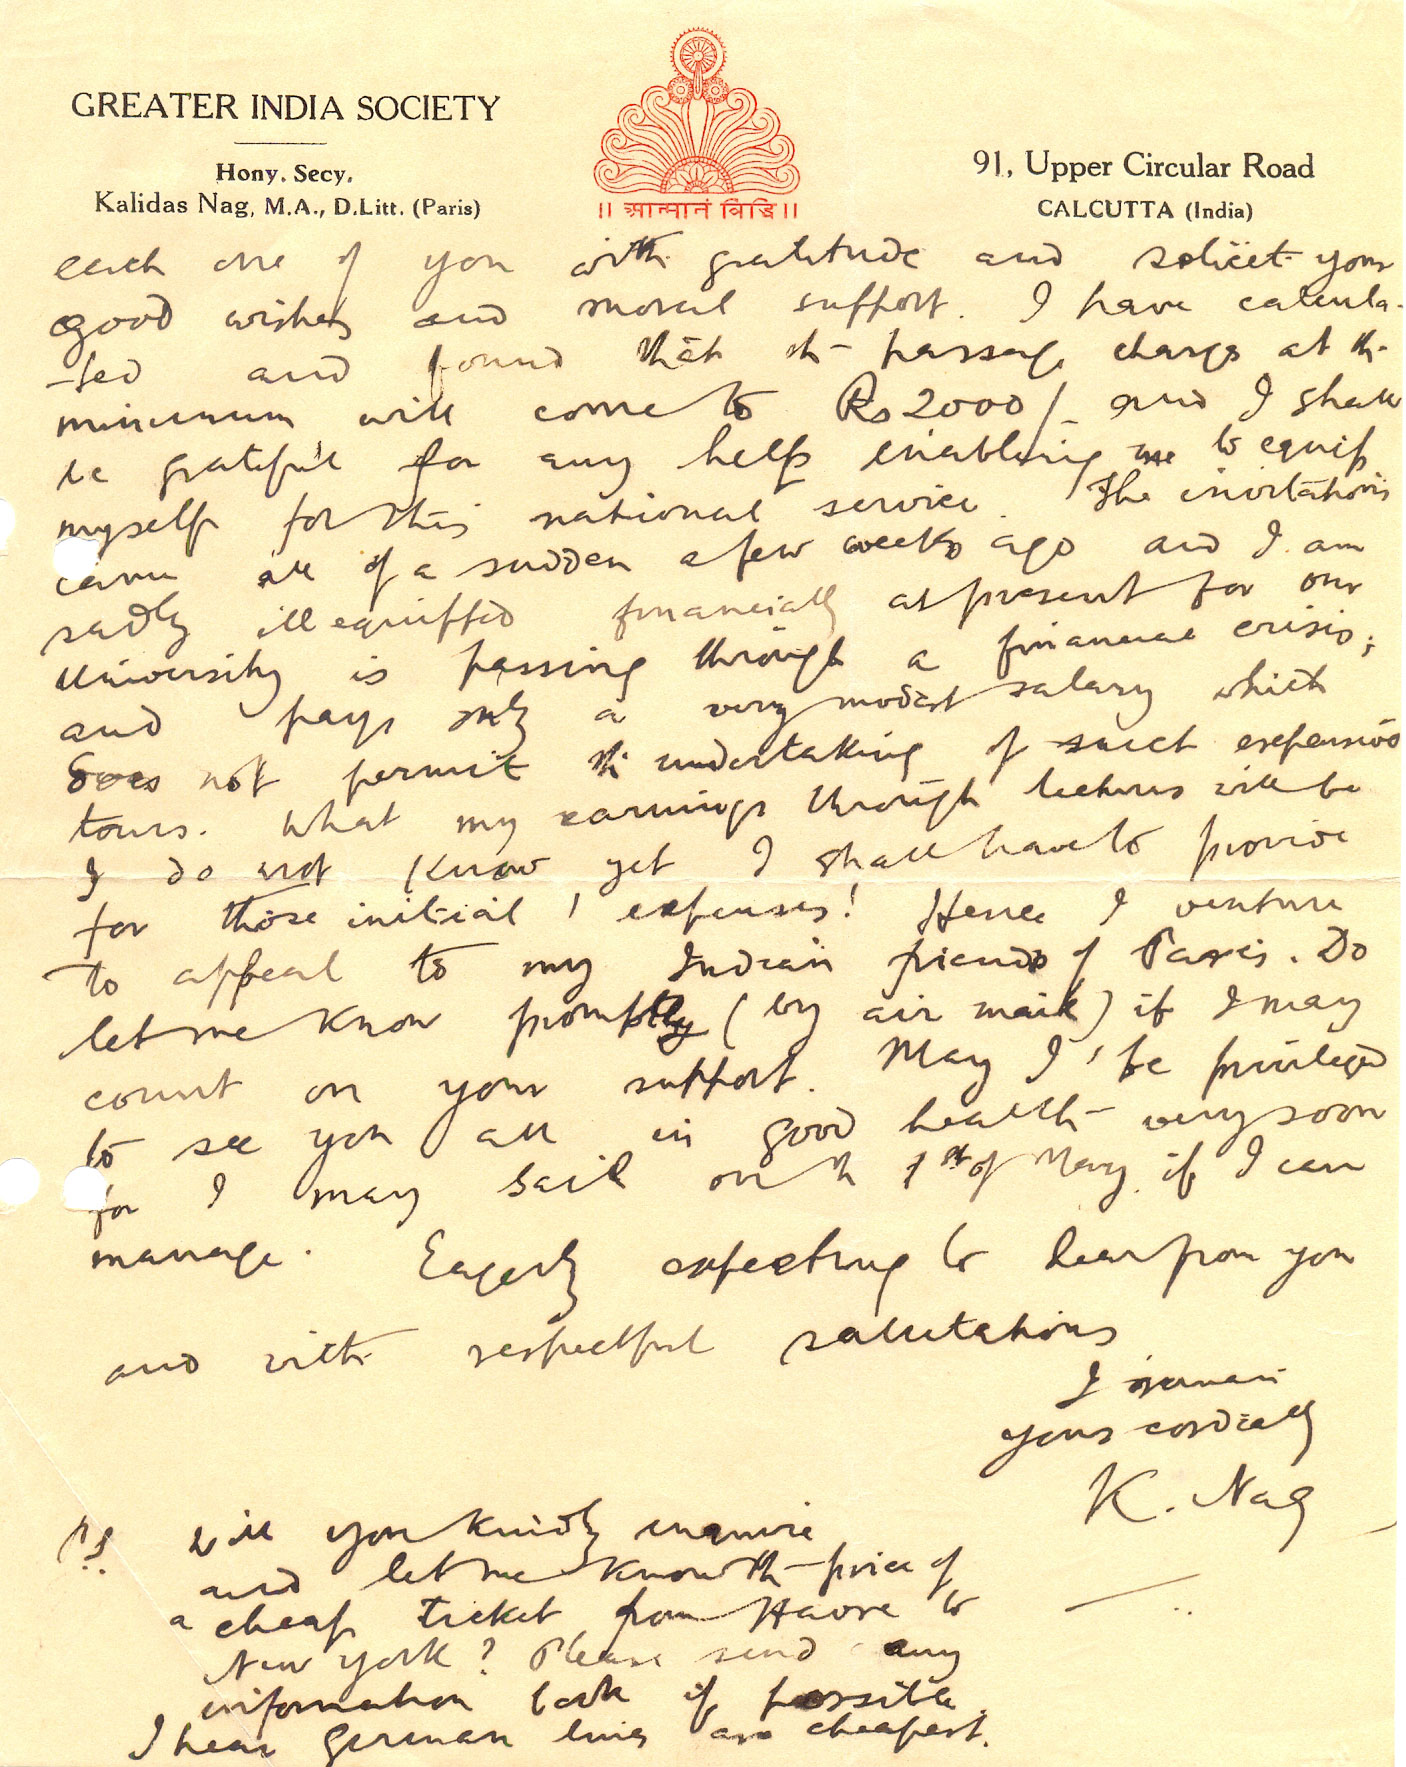 GREATER INDIA SOCIETY
Hony. Secy.
Kalidas Nag, M.A., D.Litt. (Paris)
॥ आत्मानं विद्धि ॥
91, Upper Circular Road
CALCUTTA (India)
each one of you with gratitude and solicit your
good wishes and moral support. I have calcula-
-ted and found that the passage charges at the
minimum will come to Rs 2000/- and I shall
be grateful for any help enabling me to equip
myself for this national service. The invitations
came all of a sudden a few weeks ago and I am
sadly ill equipped financially at present for our
University is passing through a financial crisis;
and pays only a very modest salary which
does not permit the undertaking of such expensive
tours. What my earnings through lectures will be
I do not know yet I shall have to provide
for those initial expenses! Hence I venture
to appeal to my Indian friends of Paris. Do
let me know promptly (by air mail) if I may
count on your support. May I be privileged
to see you all in good health very soon
for I may sail on the 1st of May if I can
manage. Eagerly expecting to hear from you
and with respectful salutations
I remain
yours cordially
K. Nag
P.S. Will you kindly enquire
and let me know the price of
a cheap ticket from Havre to
New York? Please send any
information back if possible.
I hear German lines are cheapest.